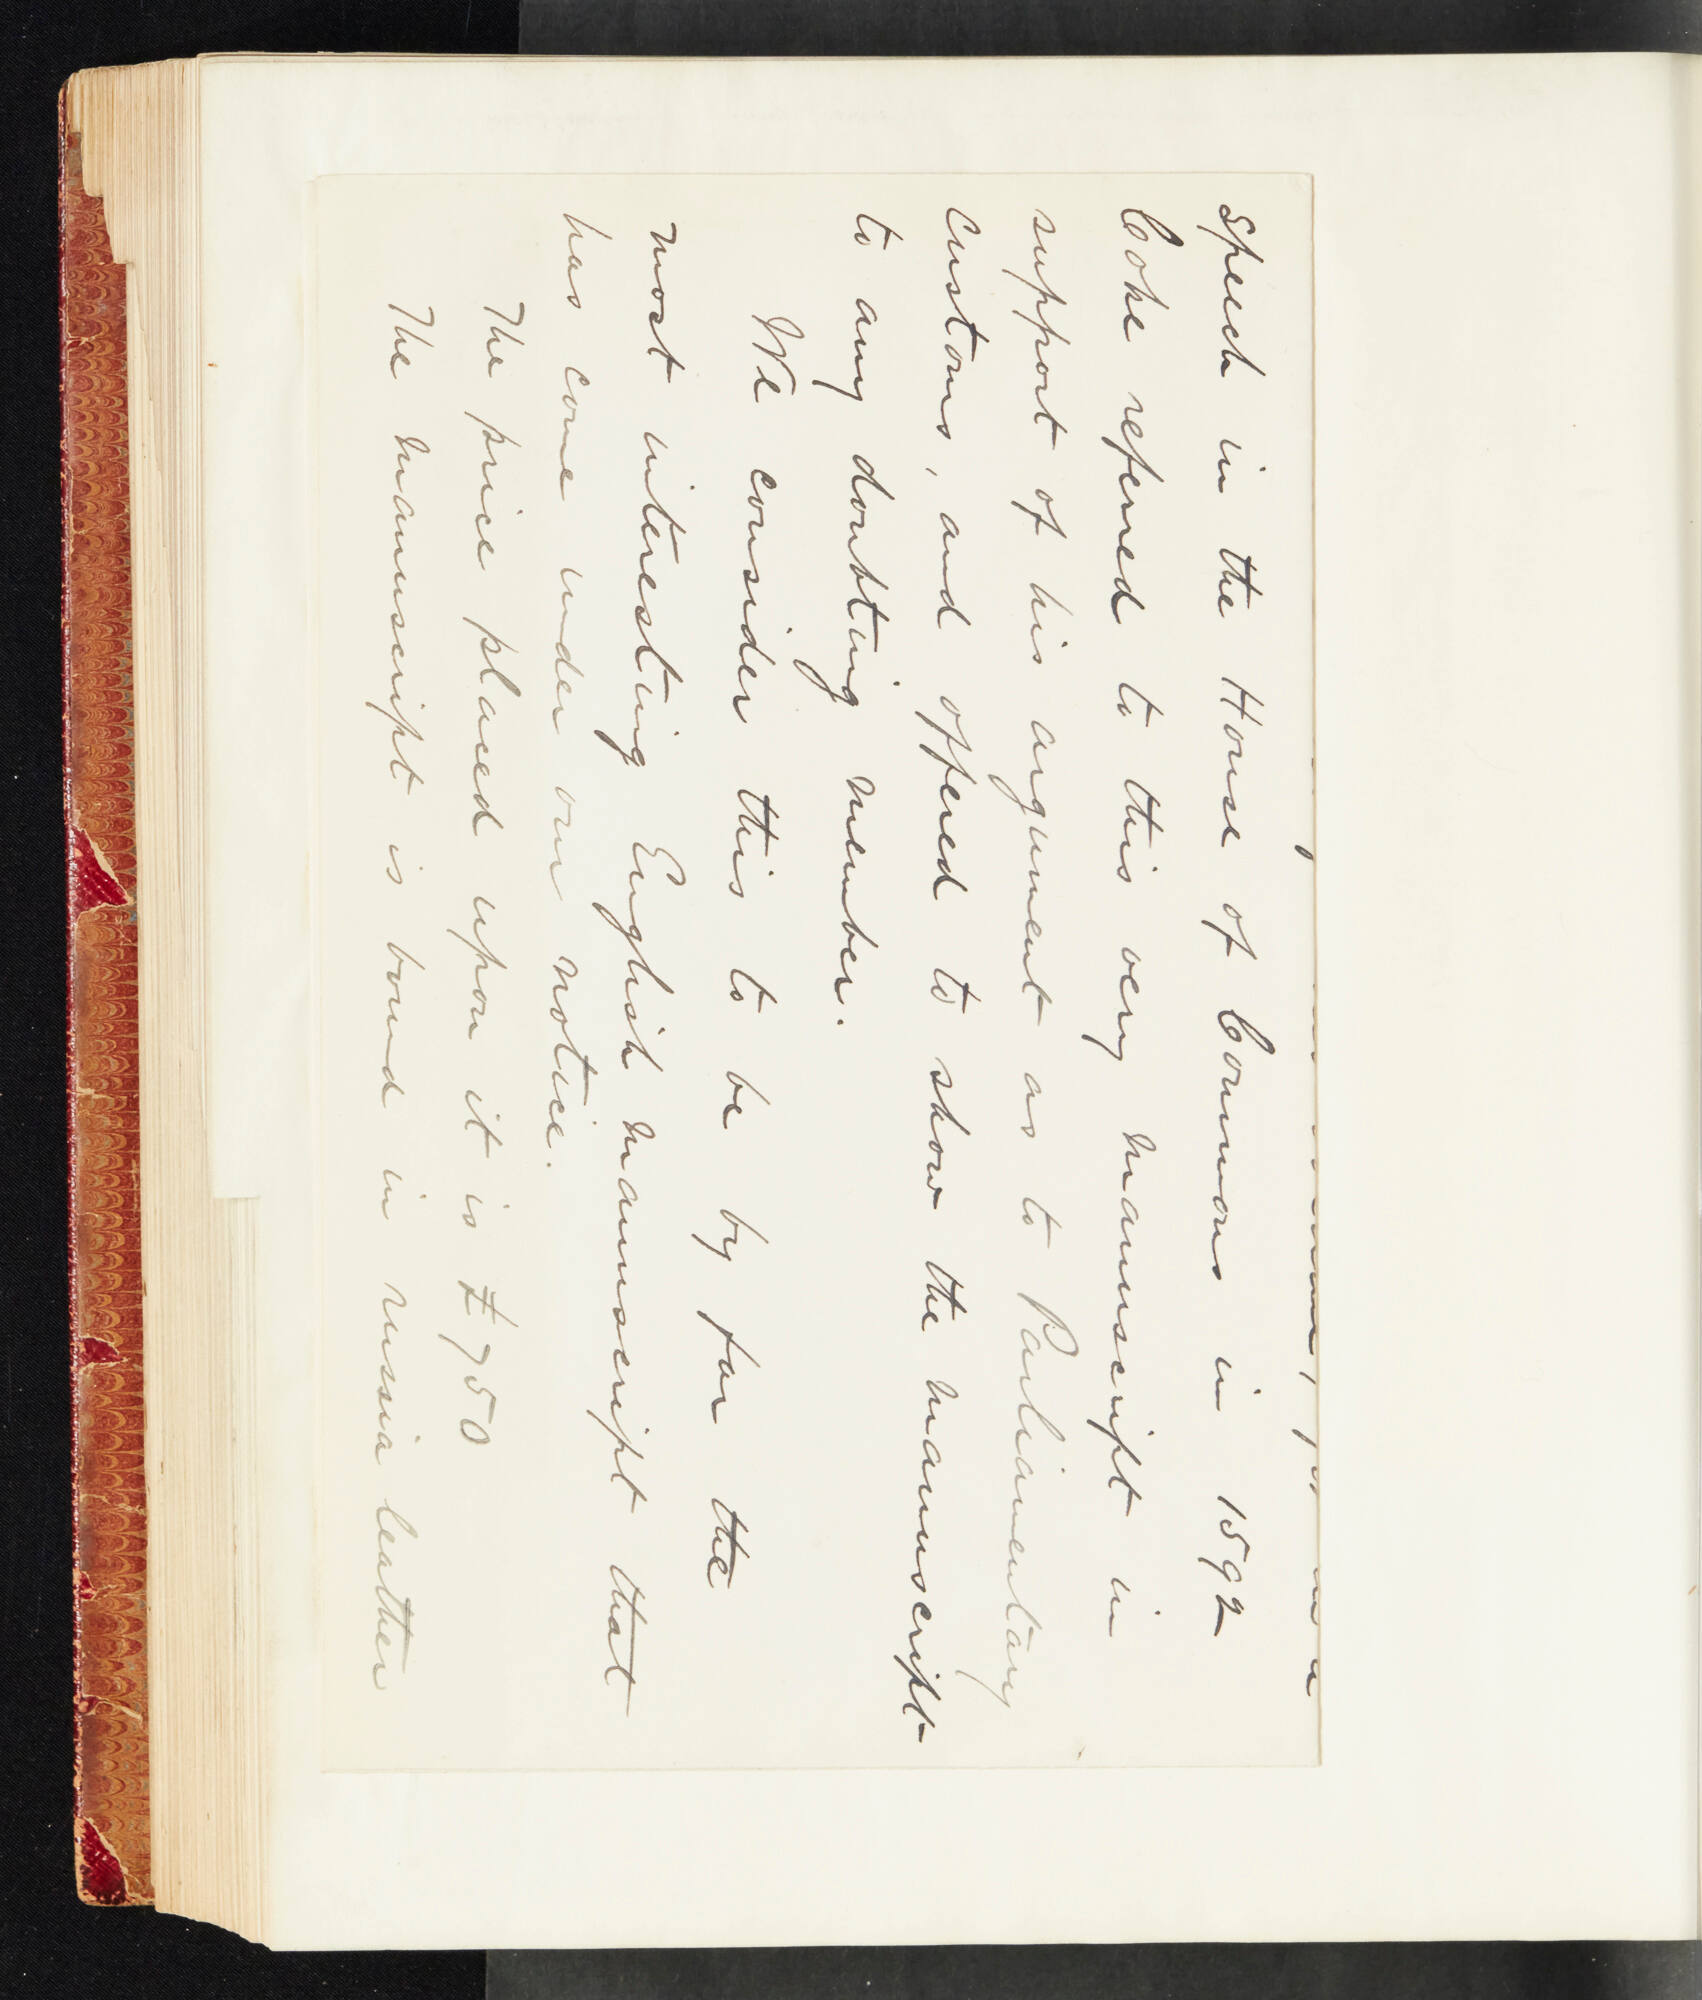 Speech in the House of Commons in 1592
Coke referred to this very manuscript in
support of his argument as to Parliamentary
Customs, and offered to show the manuscript
to any doubting member.
We consider this to be by far the
most interesting English manuscript that
has come under our notice.
The price placed upon it is £750
The manuscript is bound in russia leather